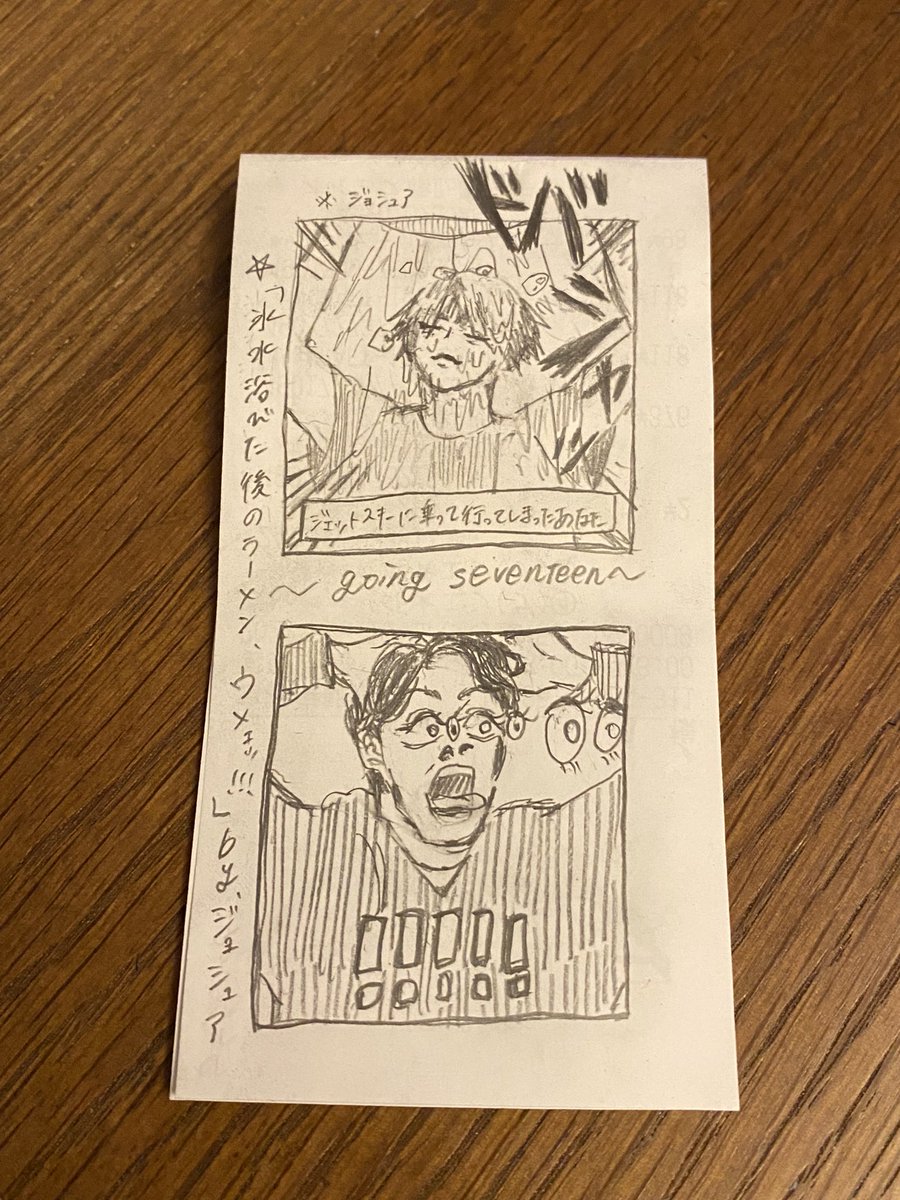 ※ ジョシュア
☆「氷水浴びた後のラーメン、ウメェッ!!!」byジョシュア
ジェットスキーに乗って行ってしまったあなた
～ going seventeen ～